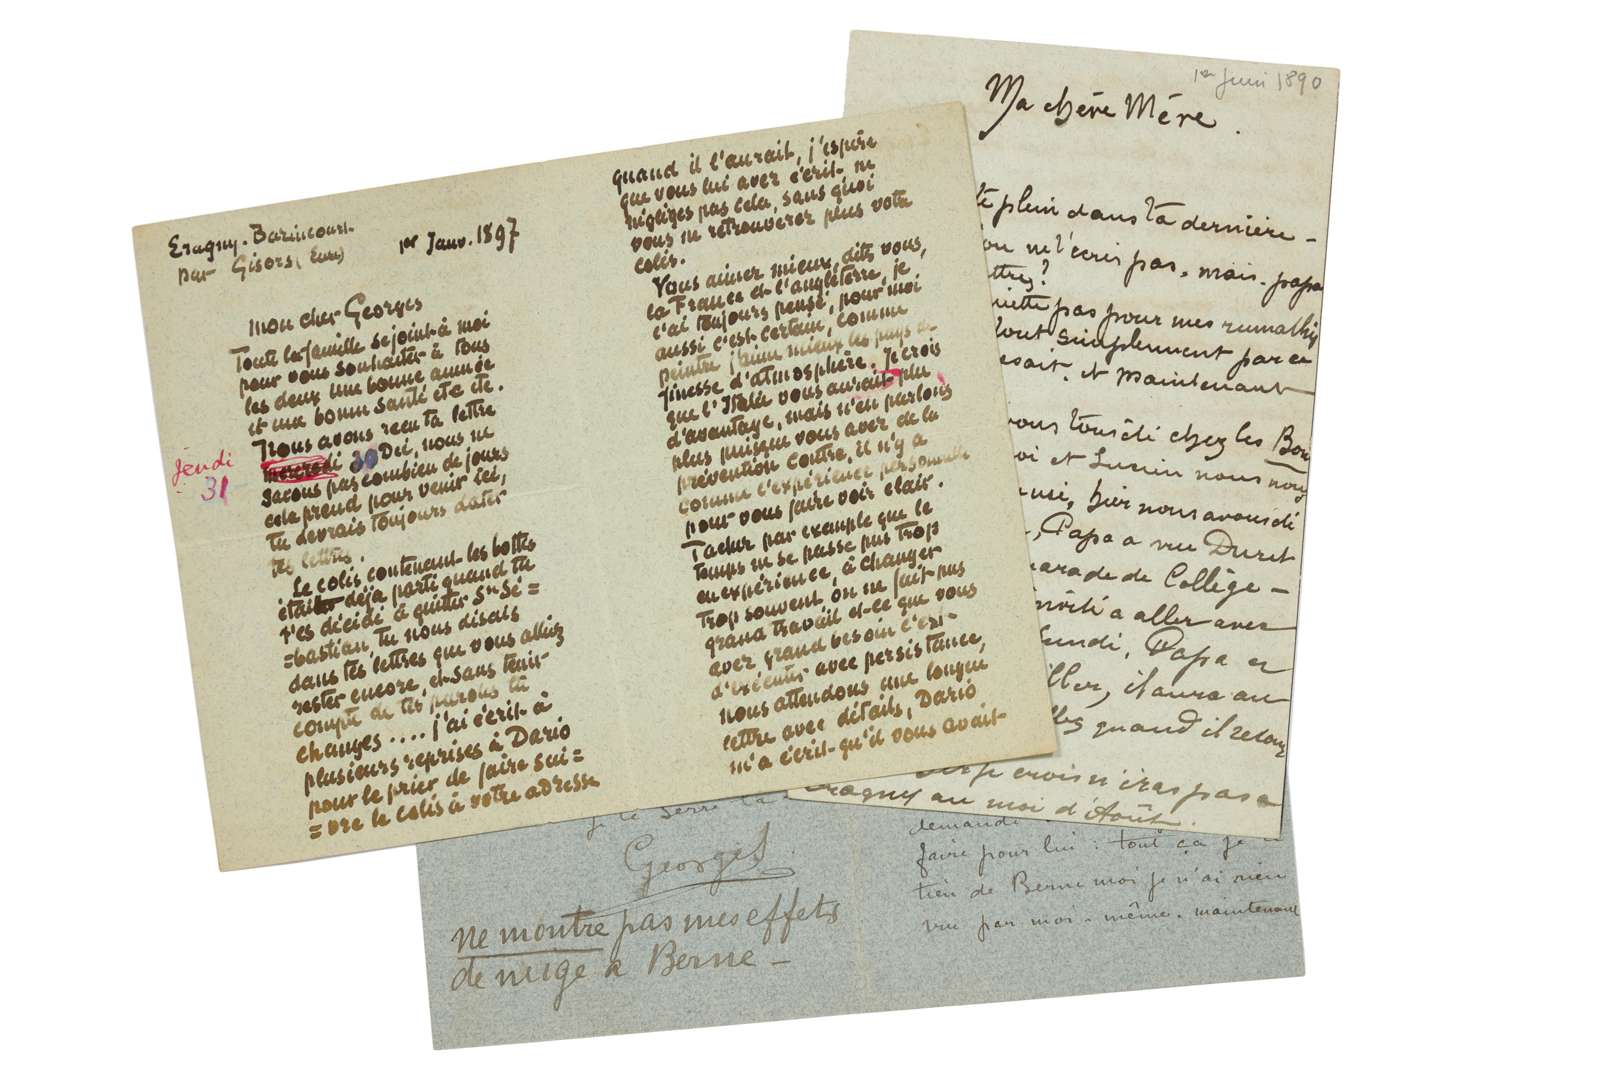 Eragny-Bazincourt
par Gisors (Eure)
1er Janv. 1897
mon cher Georges
Toute la famille se joint à moi
pour vous souhaiter à tous
les deux une bonne année
et une bonne santé etc etc.
Nous avons reçu ta lettre
mercredi 30 Dec, nous ne
jeudi
31
savons pas combien de jours
cela prend pour venir ici,
tu devrais toujours dater
tes lettres.
Le colis contenant les bottes
était déja parti quand tu
t'es décidé à quitter St Sé=
=bastian, tu nous disais
dans tes lettres que vous alliez
rester encore, et sans tenir
compte de tes paroles tu
changes .... j'ai écrit à
plusieurs reprises à Dario
pour le prier de faire sui=
=vre le colis à votre adresse
quand il l'aurait, j'espère
que vous lui avez écrit ne
négligez pas cela, sans quoi
vous ne retrouverez plus votre
colis.
Vous aimez mieux, dites vous,
la France et l'angléterre, je
l'ai toujours pensé, pour moi
aussi c'est certain, comme
peintre j'aime mieux les pays de
finesse d'atmosphère. Je crois
que l'Italie vous aurait plu
d'avantage, mais n'en parlons
plus puisque vous avez de la
prévention contre, il n'y a
comme l'expérience personnelle
pour vous faire voir clair.
Tachez par exemple que le
temps ne se passe pas trop
en expérience, à changer
trop souvent on ne fait pas
grand travail et ce que vous
avez grand besoin c'est
d'exécuter avec persistance,
nous attendons une longue
lettre avec détails, Dario
m'a écrit qu'il vous avait
1er Juin 1890
Ma chère Mère.
plein dans ta dernière -
ne l'écris pas. mais. papa
pas pour mes rumathis
tout simplement parce
et maintenant
vous tous di chez les Bou
et Lucien nous
hier nous avons di
Papa a vu Duret
de Collège -
a aller avec
lundi, Papa
il aura au
quand il
je crois n'iras pas a
au moi d'Août.
je te serre la
Georges
ne montre pas mes effets
de neige a Berne -
demande
faire pour lui : tout ça je
tien de Berne moi je n'ai rien
vu par moi - même. maintenant